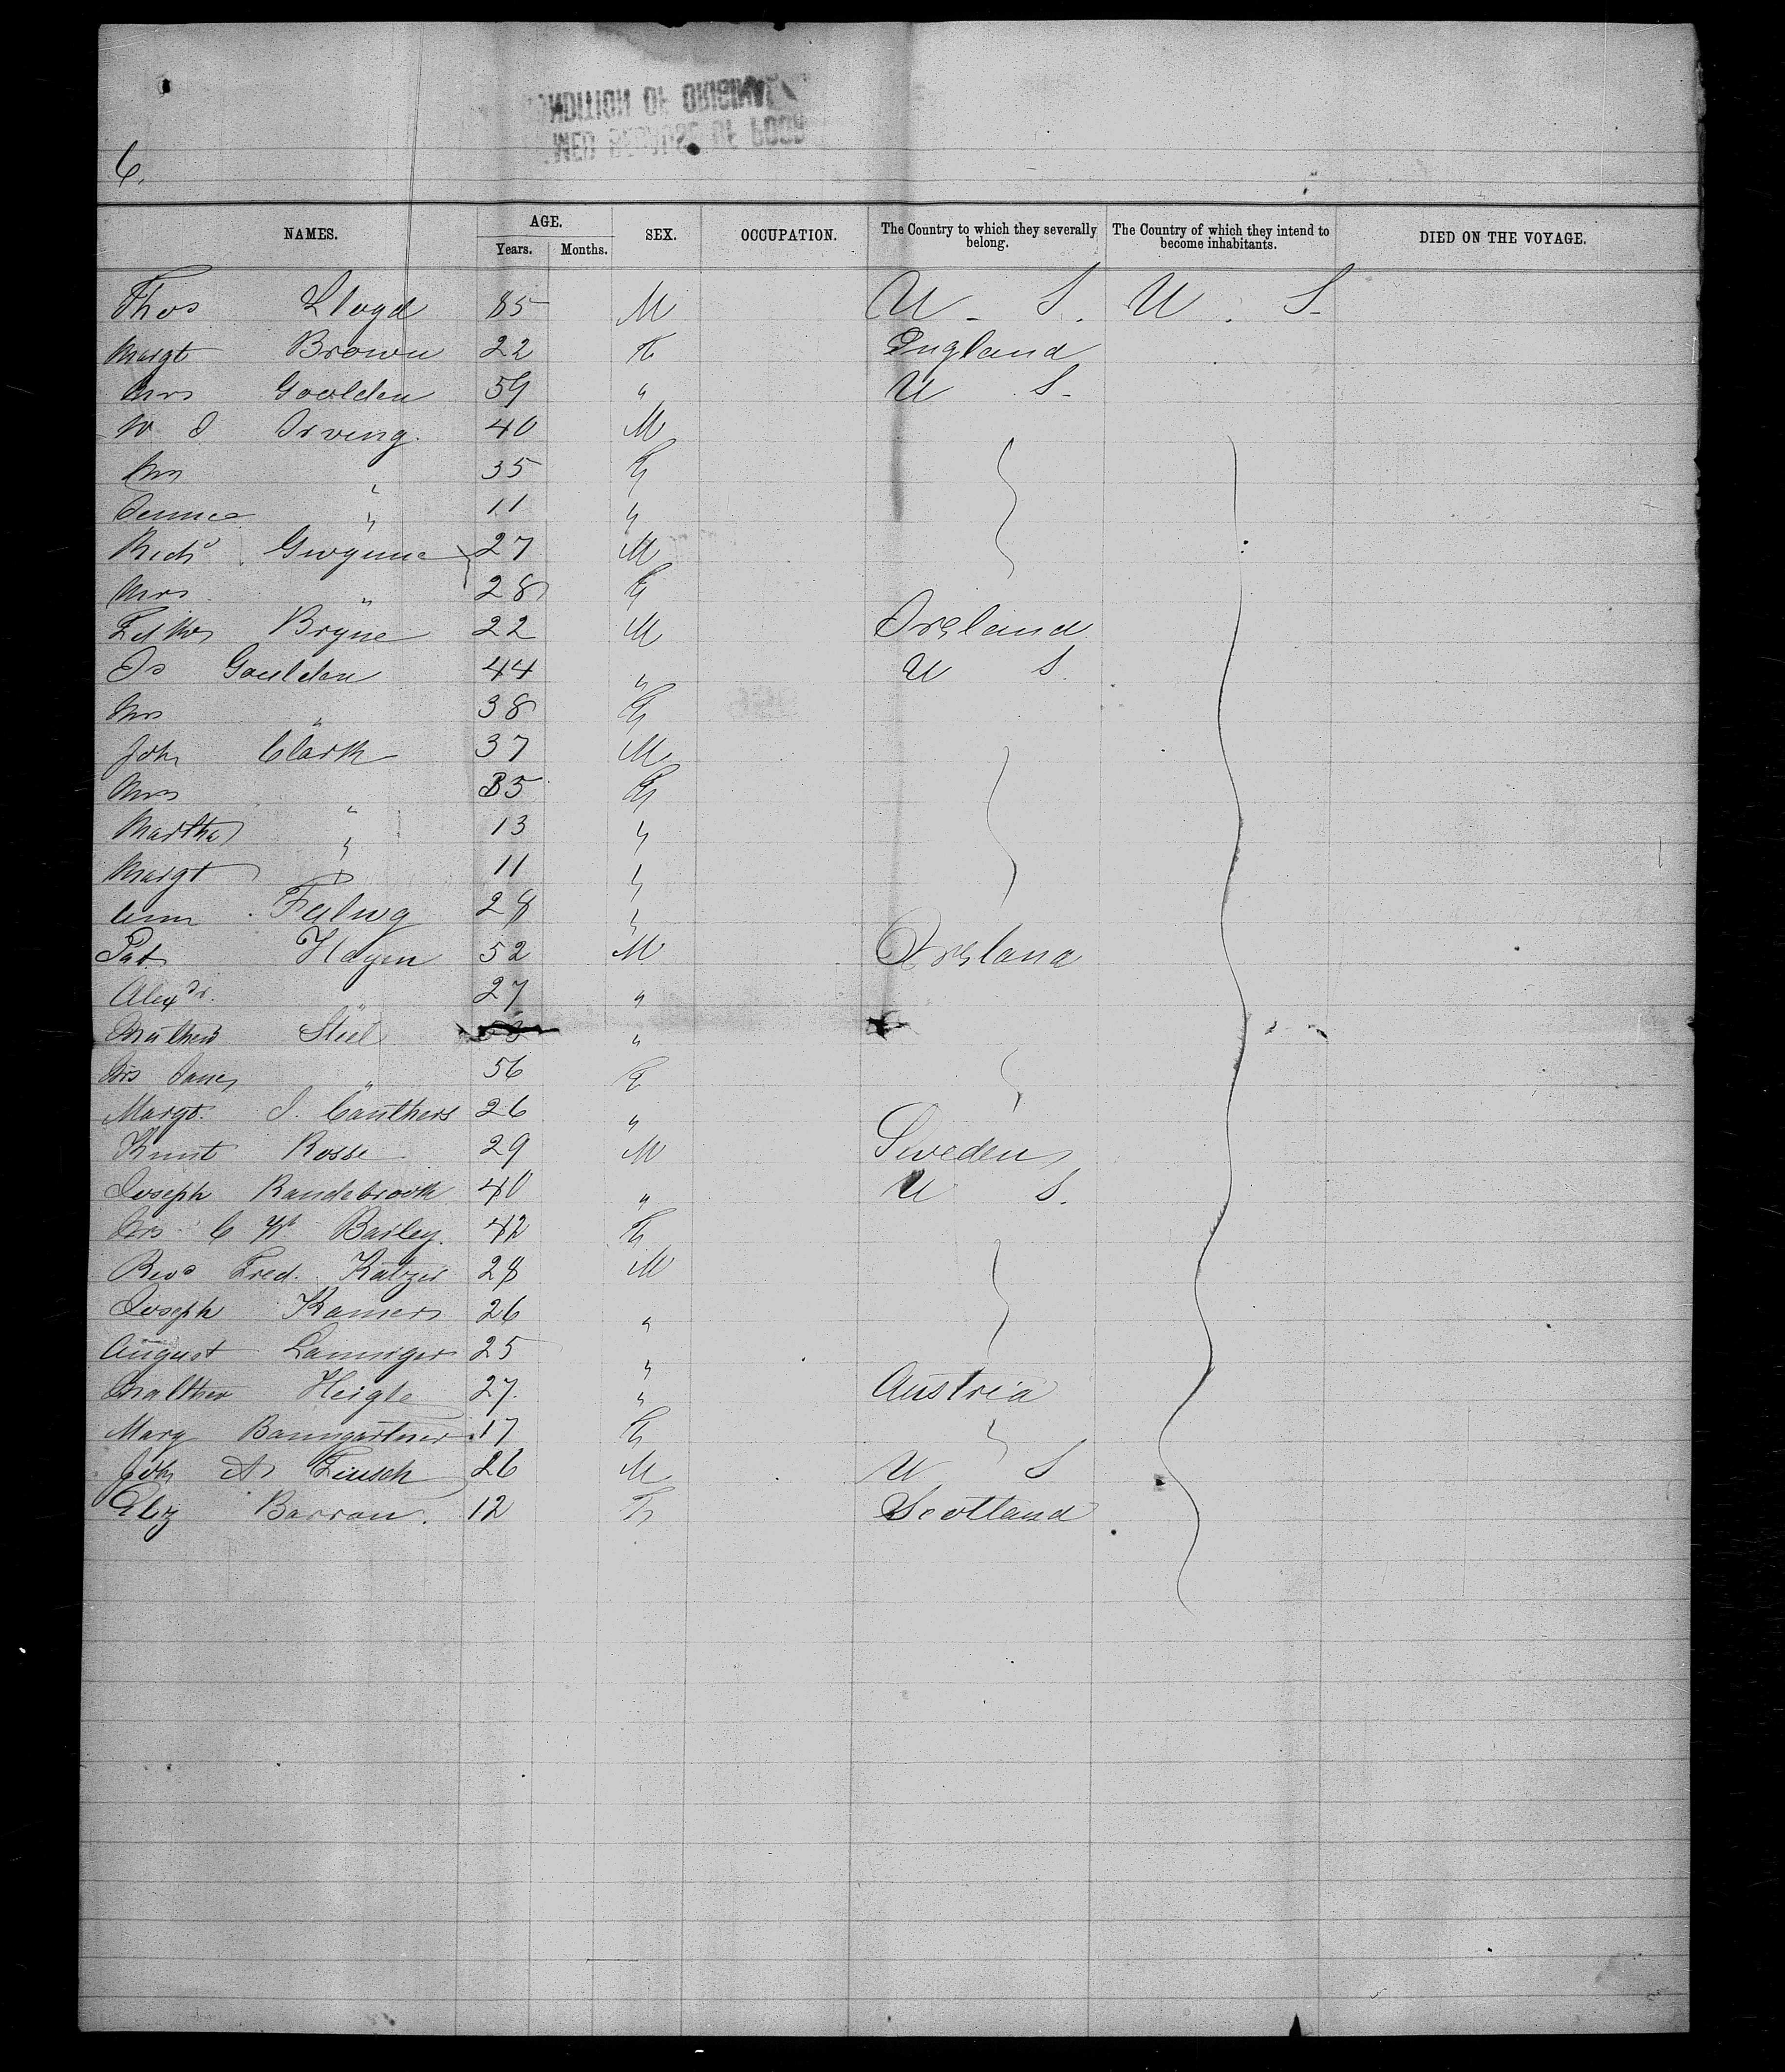 6.
NAMES. AGE. Years. Months. SEX. OCCUPATION. The Country to which they severally belong. The Country of which they intend to become inhabitants. DIED ON THE VOYAGE.
Thos Lloyd 35 M U. S. U. S.
Margt Brown 22 F England
Mrs Goolden 59 " U S.
W J Irving. 40 M
Mrs " 35 F
" 11 "
Richd Gwynne 27 M
Mrs " 28 F
Bryne 22 M Ireland
Js Goulden 44 " U S.
Mrs " 38 F
John Clark 37 M
Mrs " 35 F
Martha " 13 "
Margt " 11 "
Ann 28 "
Pat Hagen 52 M Ireland
Alexdr. " 27 "
Mathew Steel "
Mrs Jane " 56 F
Margt. J. Cauthers 26 "
Knut Rosse 29 M Sweden
Joseph Randebrook 40 " U S.
Mrs C W Barley. 42 F
Revd Fred. Katzer 28 M
Joseph Kamer 26 "
August 25 "
Mathew Heigle 27. " Austria
Mary Baumgartner 17 F
John A 26 M U S
Eliz Barron. 12 F Scotland